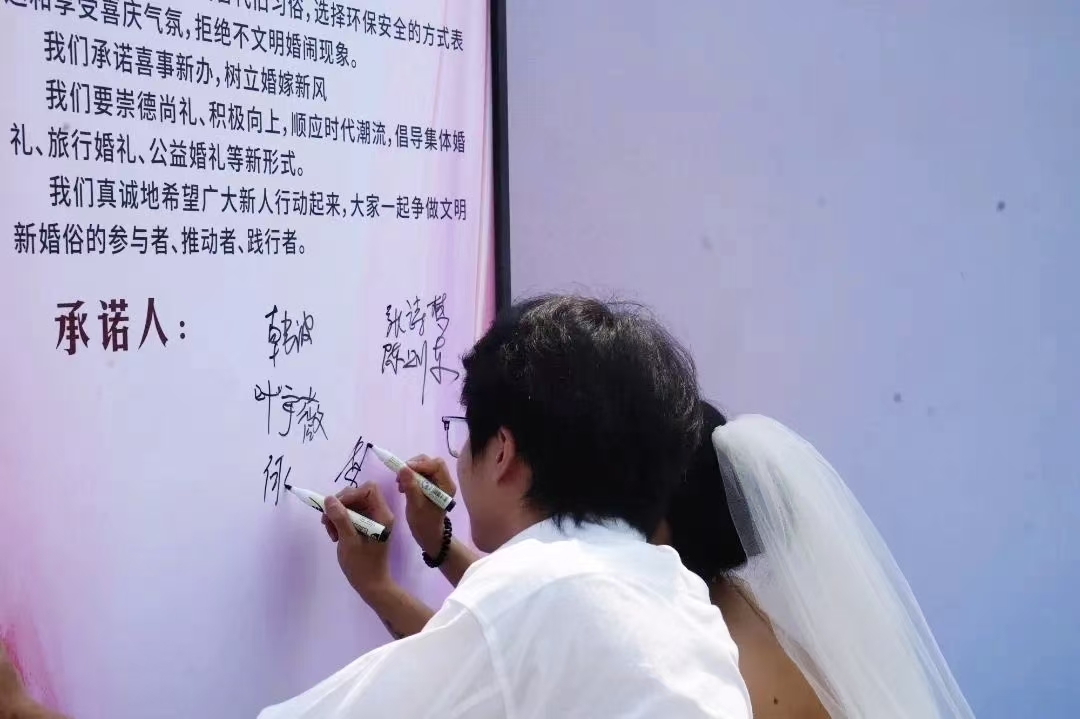 习俗,选择环保安全的方式表
和享受喜庆气氛,拒绝不文明婚闹现象。
我们承诺喜事新办,树立婚嫁新风
我们要崇德尚礼、积极向上,顺应时代潮流,倡导集体婚
礼、旅行婚礼、公益婚礼等新形式。
我们真诚地希望广大新人行动起来,大家一起争做文明
新婚俗的参与者、推动者、践行者。
承诺人:
韩波 张诗梦
叶宇薇